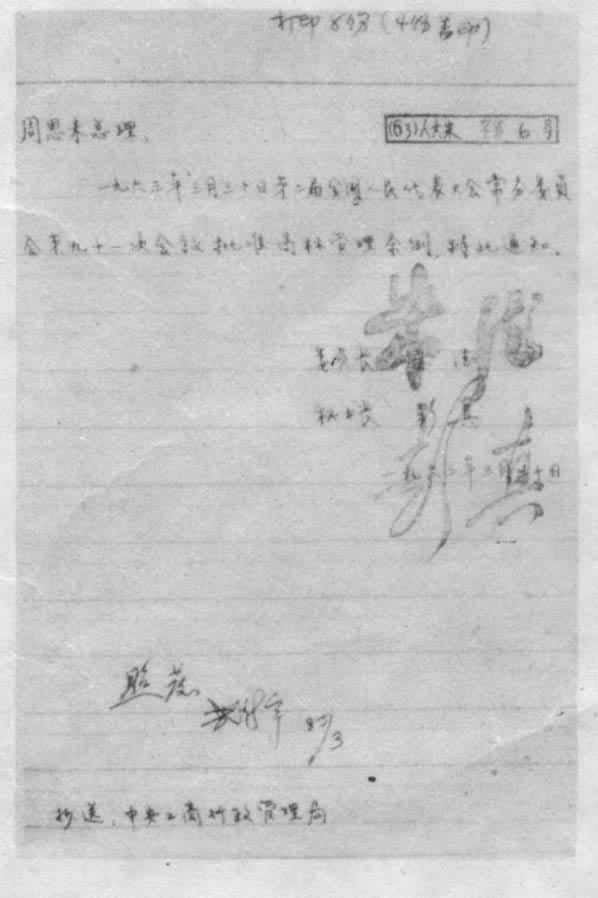 打印8份(4份盖印)
周恩来总理、
(63)人大常 字第6号
一九六三年三月三十日第二届全国人民代表大会常务委员
会第九十一次会议批准商标管理条例,特此通知。
委员长 朱德
秘书长 彭真
一九六三年三月三十日
朱德
彭真
照发
30/3
抄送:中央工商行政管理局